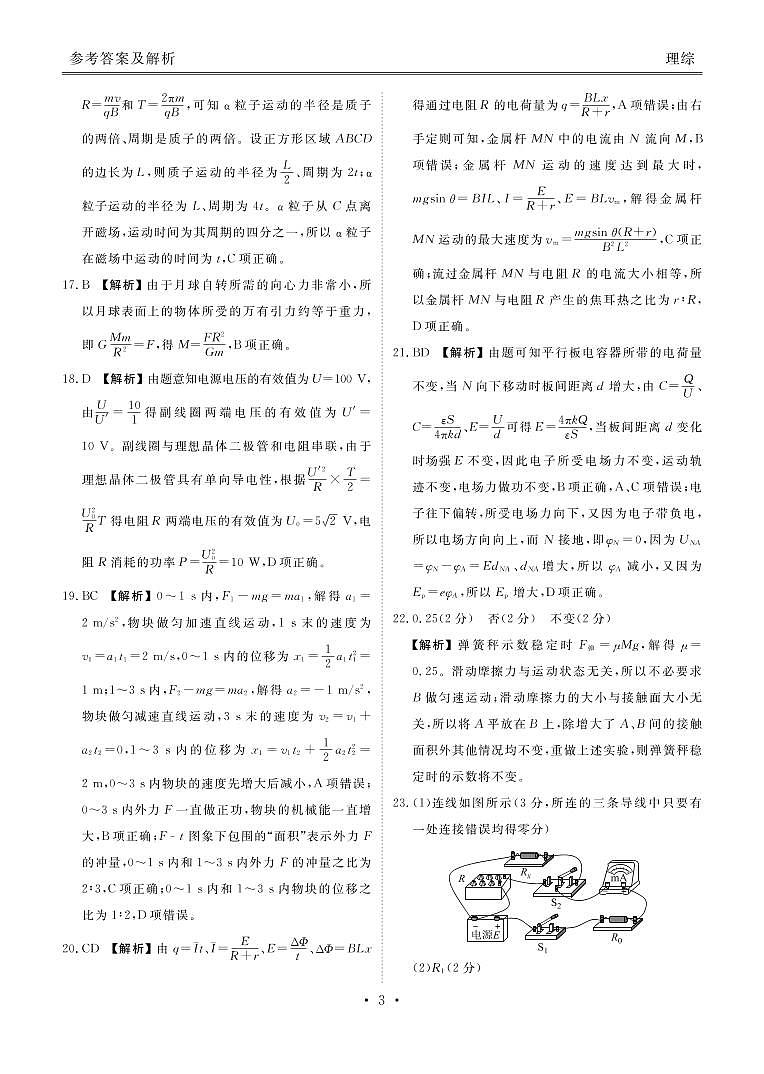 参考答案及解析
理综
R=mv/qB和 T=2πm/qB,可知 α 粒子运动的半径是质子
的两倍、周期是质子的两倍。设正方形区域 ABCD
的边长为 L,则质子运动的半径为L/2、周期为 2t;α
粒子运动的半径为 L、周期为 4t。α 粒子从 C 点离
开磁场,运动时间为其周期的四分之一,所以 α 粒子
在磁场中运动的时间为 t,C 项正确。
17. B 【解析】由于月球自转所需的向心力非常小,所
以月球表面上的物体所受的万有引力约等于重力,
即 G Mm/R²=F,得 M=FR²/Gm,B 项正确。
18. D 【解析】由题意知电源电压的有效值为 U=100 V,
由U/U′=10/1得副线圈两端电压的有效值为 U′=
10 V。副线圈与理想晶体二极管和电阻串联,由于
理想晶体二极管具有单向导电性,根据U′²/R×T/2=
U₀²/R T 得电阻 R 两端电压的有效值为 U₀=5√2 V,电
阻 R 消耗的功率 P=U₀²/R=10 W,D 项正确。
19. BC 【解析】0～1 s 内,F₁-mg=ma₁,解得 a₁=
2 m/s²,物块做匀加速直线运动,1 s 末的速度为
v₁=a₁t₁=2 m/s,0～1 s 内的位移为 x₁=1/2 a₁t₁²=
1 m;1～3 s 内,F₂-mg=ma₂,解得 a₂=-1 m/s²,
物块做匀减速直线运动,3 s 末的速度为 v₂=v₁+
a₂t₂=0,1～3 s 内的位移为 x₁=v₁t₂+1/2 a₂t₂²=
2 m,0～3 s 内物块的速度先增大后减小,A 项错误;
0～3 s 内外力 F 一直做正功,物块的机械能一直增
大,B 项正确;F-t 图象下包围的“面积”表示外力 F
的冲量,0～1 s 内和 1～3 s 内外力 F 的冲量之比为
2∶3,C 项正确;0～1 s 内和 1～3 s 内物块的位移之
比为 1∶2,D 项错误。
20. CD 【解析】由 q=Īt、Ī=E/(R+r)、E=ΔΦ/t、ΔΦ=BLx
得通过电阻 R 的电荷量为 q=BLx/(R+r),A 项错误;由右
手定则可知,金属杆 MN 中的电流由 N 流向 M,B
项错误;金属杆 MN 运动的速度达到最大时,
mgsin θ=BIL、I=E/(R+r)、E=BLvₘ,解得金属杆
MN 运动的最大速度为 vₘ=mgsin θ(R+r)/B²L²,C 项正
确;流过金属杆 MN 与电阻 R 的电流大小相等,所
以金属杆 MN 与电阻 R 产生的焦耳热之比为 r∶R,
D 项正确。
21. BD 【解析】由题可知平行板电容器所带的电荷量
不变,当 N 向下移动时板间距离 d 增大,由 C=Q/U、
C=εS/4πkd、E=U/d可得 E=4πkQ/εS,当板间距离 d 变化
时场强 E 不变,因此电子所受电场力不变,运动轨
迹不变,电场力做功不变,B 项正确,A、C 项错误;电
子往下偏转,所受电场力向下,又因为电子带负电,
所以电场方向向上,而 N 接地,即φN=0,因为 UNA
=φN-φA=EdNA、dNA增大,所以 φA 减小,又因为
Eₚ=eφA,所以 Eₚ 增大,D 项正确。
22. 0.25(2 分) 否(2 分) 不变(2 分)
【解析】弹簧秤示数稳定时 F弹=μMg,解得 μ=
0.25。滑动摩擦力与运动状态无关,所以不必要求
B 做匀速运动;滑动摩擦力的大小与接触面大小无
关,所以将 A 平放在 B 上,除增大了 A、B 间的接触
面积外其他情况均不变,重做上述实验,则弹簧秤稳
定时的示数将不变。
23. (1)连线如图所示(3 分,所连的三条导线中只要有
一处连接错误均得零分)
R
Rx
S₂
mA
- +
电源E
S₁
R₀
(2)R₁(2 分)
· 3 ·